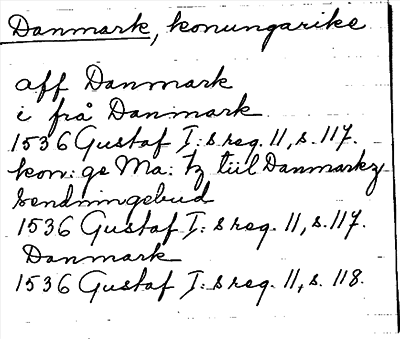 Danmark, konungarike
aff Danmark
i frå Danmark
1536 Gustaf I:s reg. 11, s. 117.
kon: ge Ma: tz tiil Danmarkz
sendningebud
1536 Gustaf I:s reg. 11, s. 117.
Danmark
1536 Gustaf I:s reg. 11, s. 118.